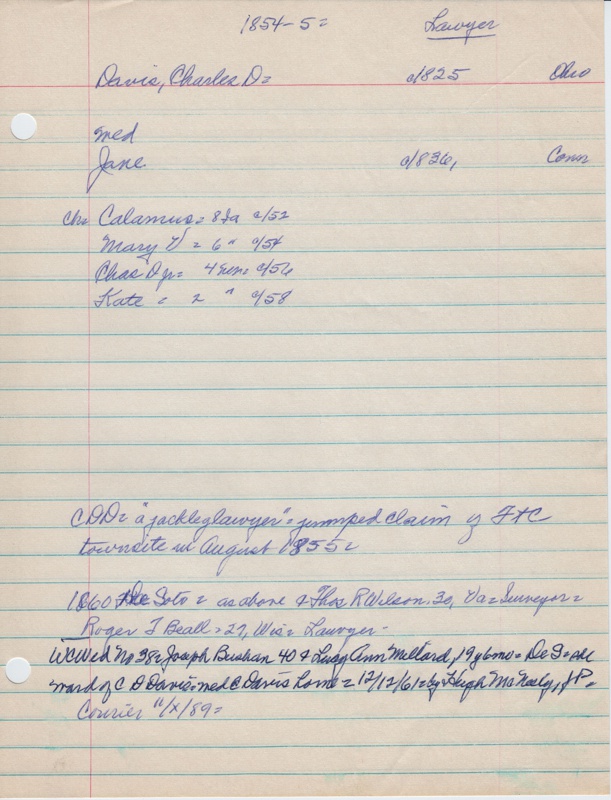 1854-5= Lawyer
Davis, Charles D= c/1825 Ohio
med
Jane c/1836, Conn
ch= Calamus= 8 Ia c/52
Mary V = 6 " c/54
Chas D jr= 4 c/56
Kate = 2 " c/58
CDD= "a jackleg lawyer"= jumped claim of FtC
townsite in August 1855=
1860 De Soto= as above & Thos R Wilson, 30, Va= Surveyor=
Roger T Beall= 27, Wis= Lawyer-
WCWed No 38= Joseph Bushan 40 & Ann Millard, 19y6mo= De S=
ward of C D Davis=med C Davis home= 12/12/61=by Hugh McNeely, JP=
Courier "/X/89=